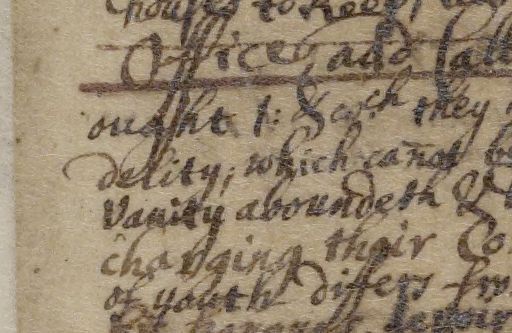 to keep,
Office and Call
ought to they
delity, which canot be
Vanity aboundeth &
changing their Co
of youth differs fro